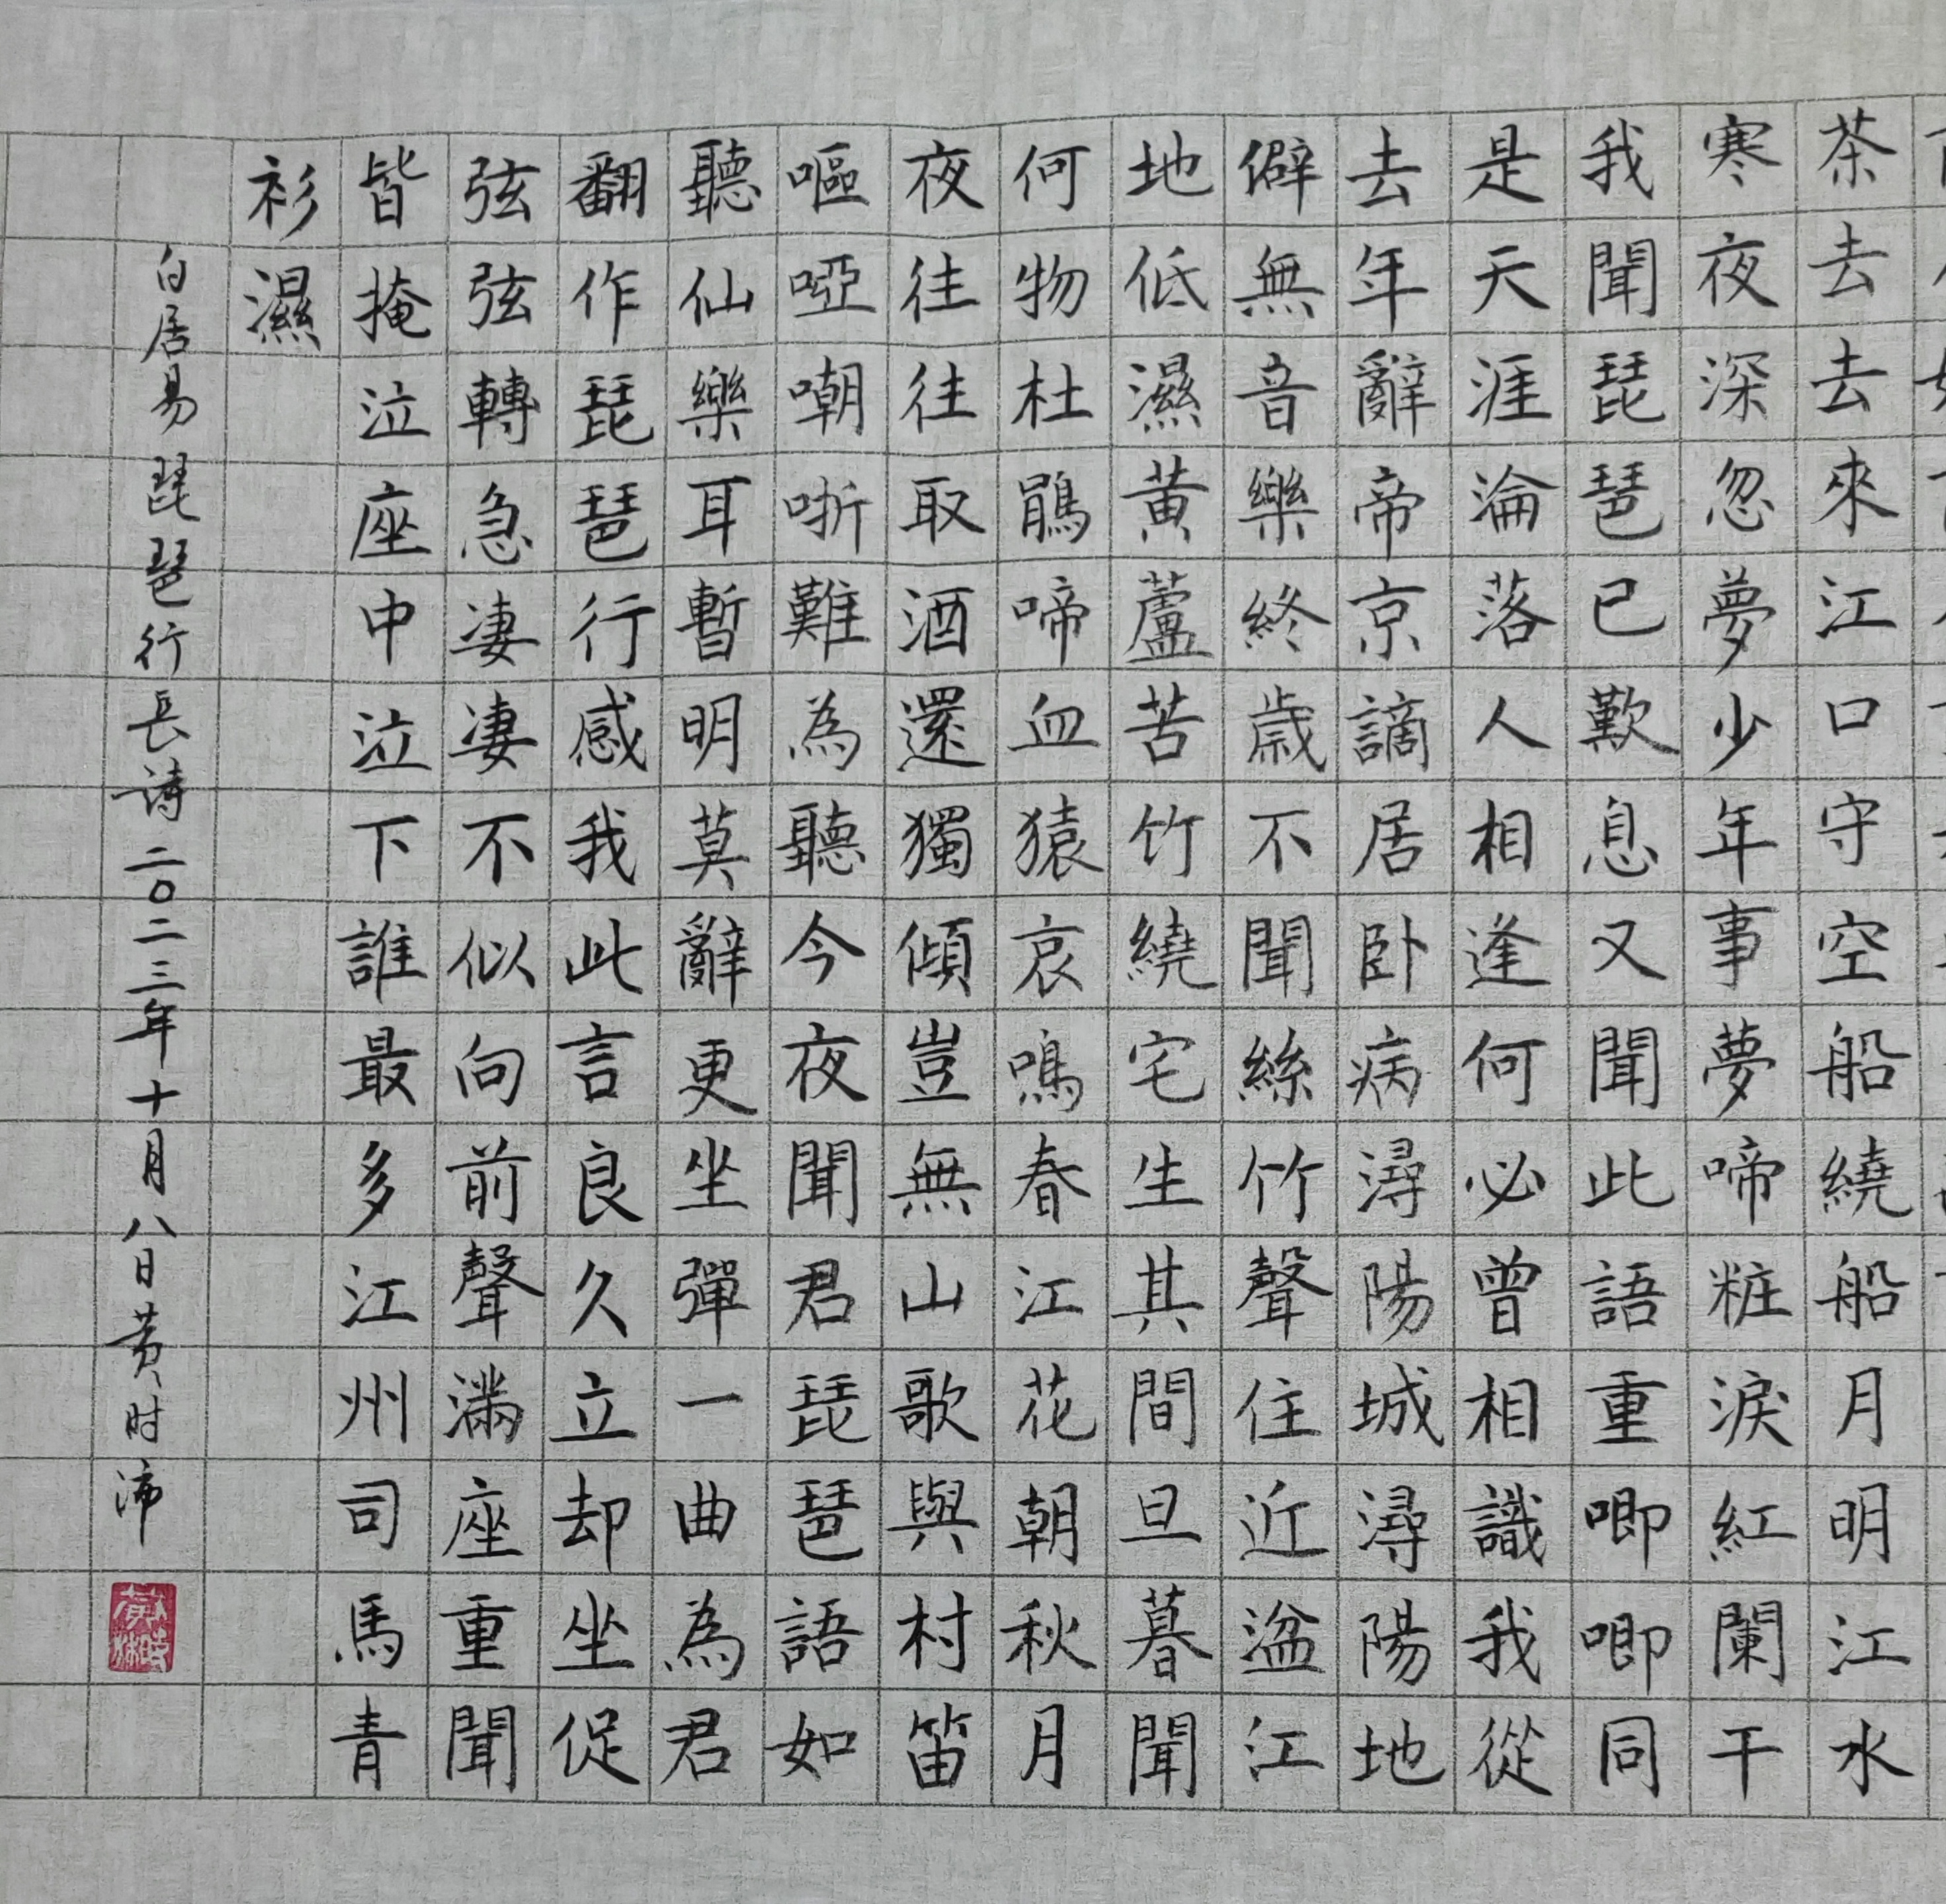 茶去去來江口守空船繞船月明江水
寒夜深忽夢少年事夢啼粧淚紅闌干
我聞琵琶已歎息又聞此語重唧唧同
是天涯淪落人相逢何必曾相識我從
去年辭帝京謫居卧病潯陽城潯陽地
僻無音樂終歲不聞絲竹聲住近湓江
地低濕黃蘆苦竹繞宅生其間旦暮聞
何物杜鵑啼血猿哀鳴春江花朝秋月
夜往往取酒還獨傾豈無山歌與村笛
嘔啞嘲哳難為聽今夜聞君琵琶語如
聽仙樂耳暫明莫辭更坐彈一曲為君
翻作琵琶行感我此言良久立却坐促
弦弦轉急凄凄不似向前聲滿座重聞
皆掩泣座中泣下誰最多江州司馬青
衫濕
白居易琵琶行長诗二〇二三年十月八日黄时沛